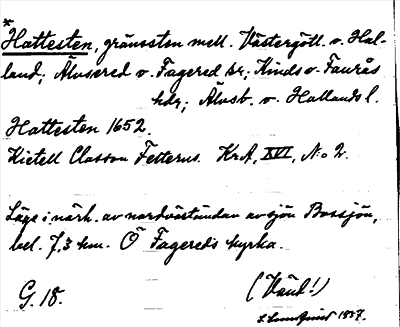 *
Hattesten, gränssten mell. Västergötl. o. Hal-
land; Älvsered o. Fagered sr; Kinds o. Faurås
hdr; Älvsb. o. Hallands l.
Hattesten 1652.
Kietell Classon Felterus. KrA, XVI, No 2.
Läge i närh. av nordvöständan av sjön Bossjön,
bel. 7,3 km. Ö Fagereds kyrka.
G. 18.
(Vänd!)